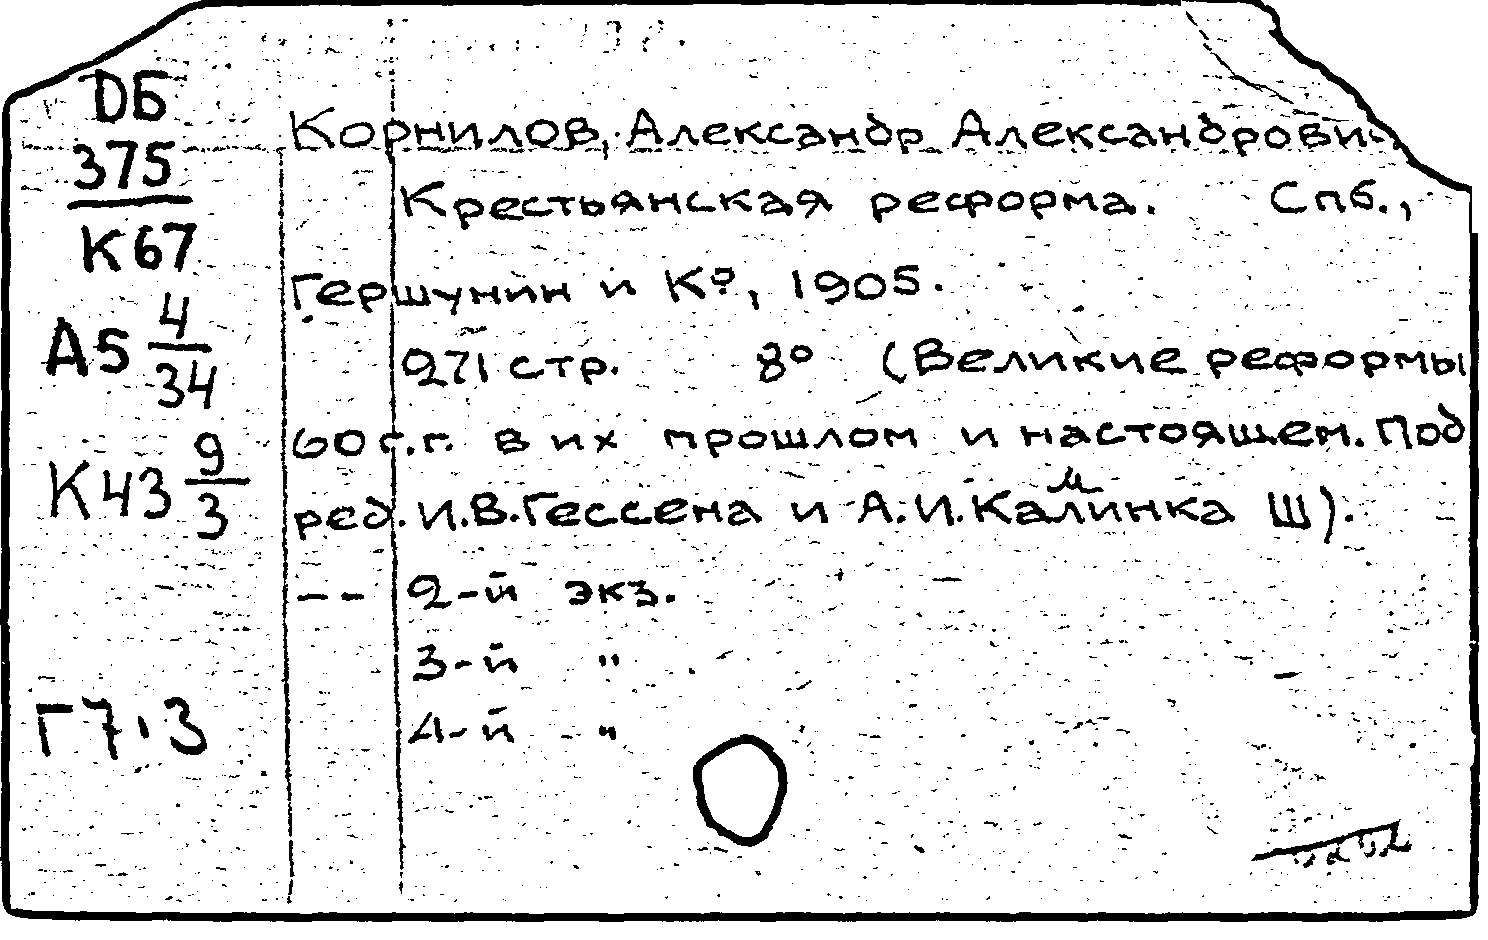 DБ
375
К67
А5 4/34
К43 9/3
Г7,3
Корнилов, Александр Александрови
Крестьянская реформа. Спб.,
Гершунин и Ко, 1905.
271 стр. 8° (Великие реформы
60 г.г. в их прошлом и настоящем. Под
ред. И.В.Гессена и А.И.Калминка Ш).
-- 2-й экз.
3-й "
4-й "